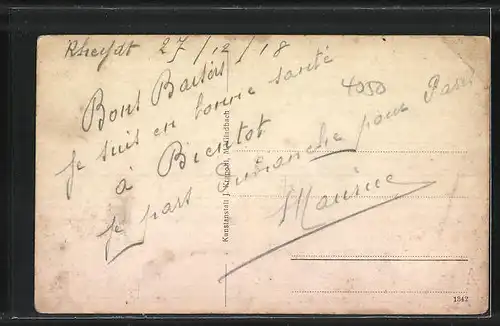 Rheydt 27/12/18
Bons Baisers
je suis en bonne santé
à Bientot
je pars Dimanche pour Paris
Maurice
4050
Kunstanstalt J. M.Gladbach
1342